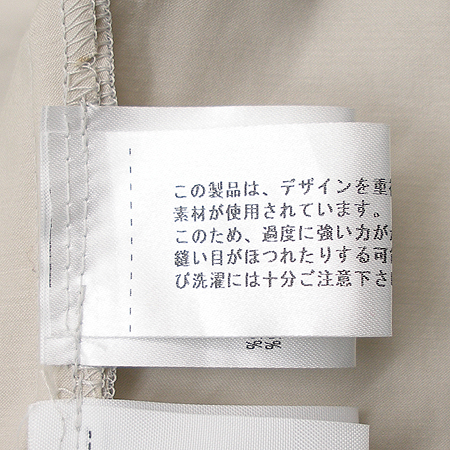 この製品は、デザインを重
素材が使用されています。
このため、過度に強い力が
縫い目がほつれたりする可
び洗濯には十分ご注意下さ